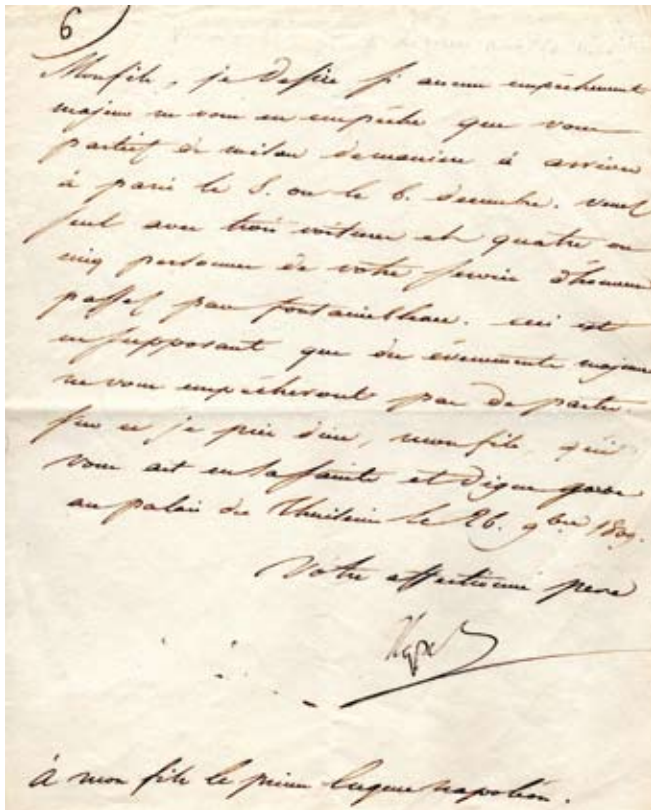 6
Mon fils, je desire si aucun empéchement
majeur ne vous en empéche que vous
partiez de milan de maniere à arriver
à paris le 5. ou le 6. decembre. venez
seul avec trois voitures et quatre ou
cinq personnes de votre service d'honneur
passez par fontainebleau. ceci est
en supposant que des évenements majeurs
ne vous empécheront pas de partir.
sur ce je prie dieu, mon fils, qu'il
vous ait en sa sainte et digne garde
au palais des Thuileries le 26. 9bre 1809.
Votre affectionné pere
Nap
à mon fils le prince Eugene napoléon.